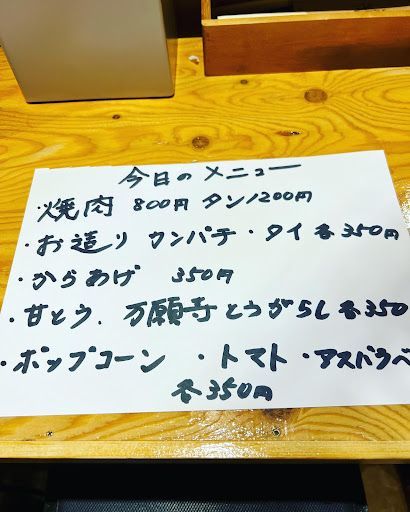 今日のメニュー
・焼肉 800円 タン1200円
・お造り カンパチ・タイ各350円
・からあげ 350円
・甘とう、万願寺とうがらし各350
・ポップコーン ・トマト・アスパラベ
各350円